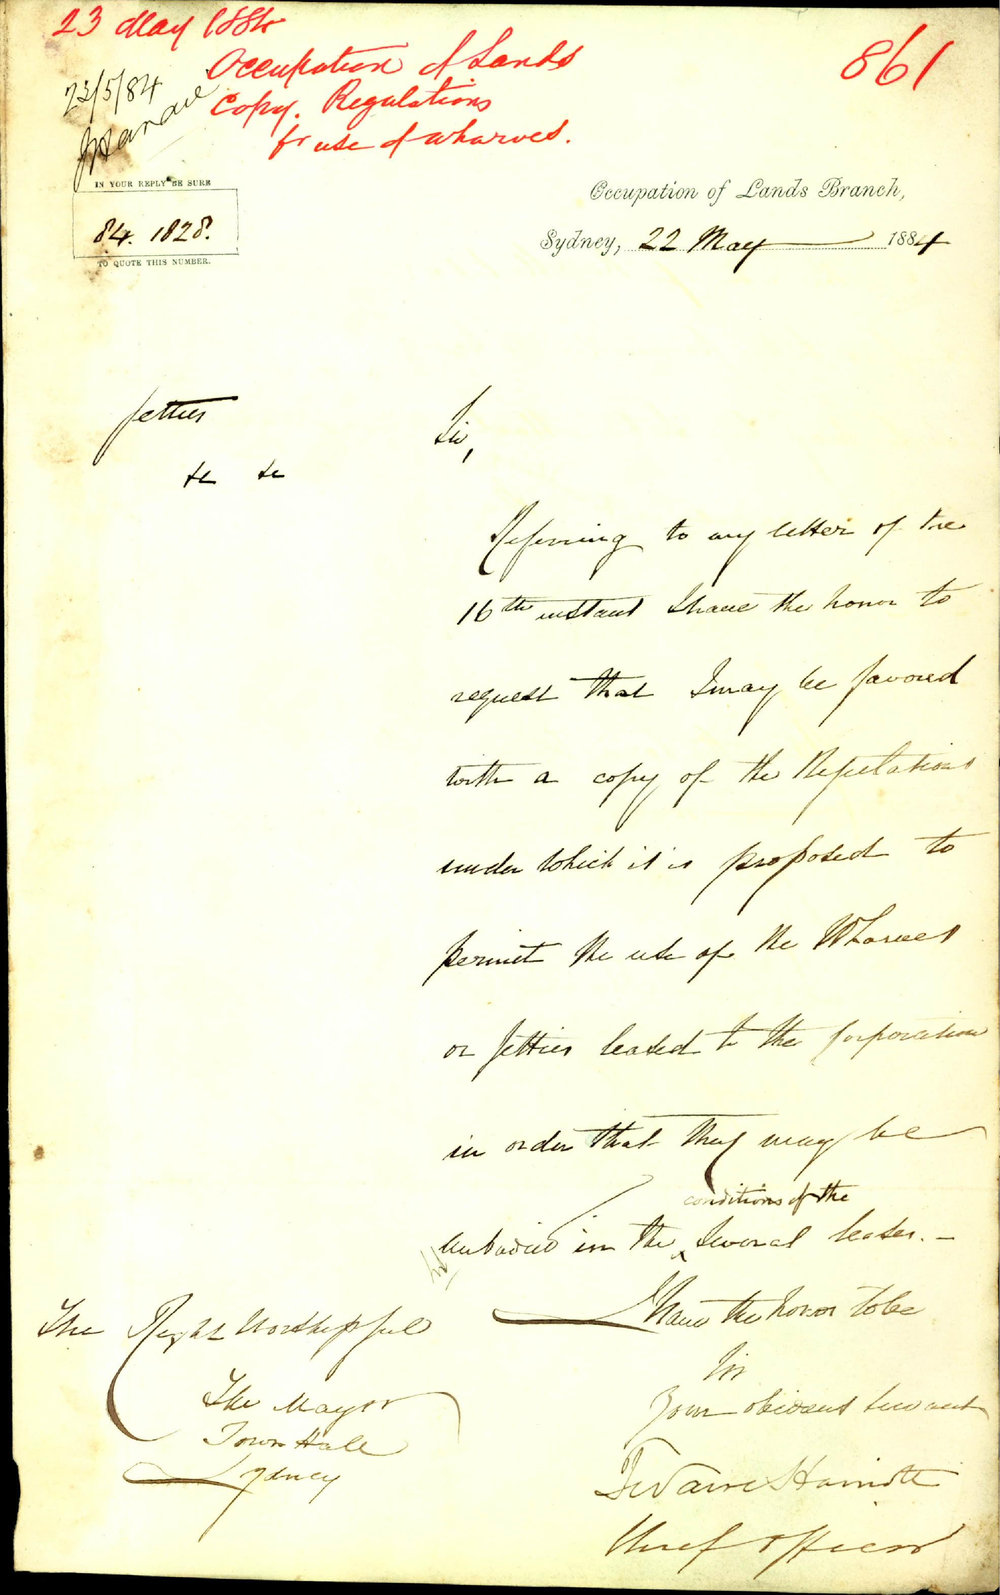 23 May 1884
Occupation of Lands
Copy. Regulations
for use of wharves.
861
23/5/84
IN YOUR REPLY BE SURE
84. 1828.
TO QUOTE THIS NUMBER.
Occupation of Lands Branch,
Sydney, 22 May 1884
Jetties
&c &c
Sir,
Referring to my letter of the
16th instant I have the honor to
request that I may be favored
with a copy of the Regulations
under which it is proposed to
permit the use of the Wharves
or Jetties leased to the Corporation
in order that they may be
conditions of the
embodied in the several leases. –
I have the honor to be
Sir
Your obedient servant
Chief Officer
The Right Worshipful
The Mayor
Town Hall
Sydney